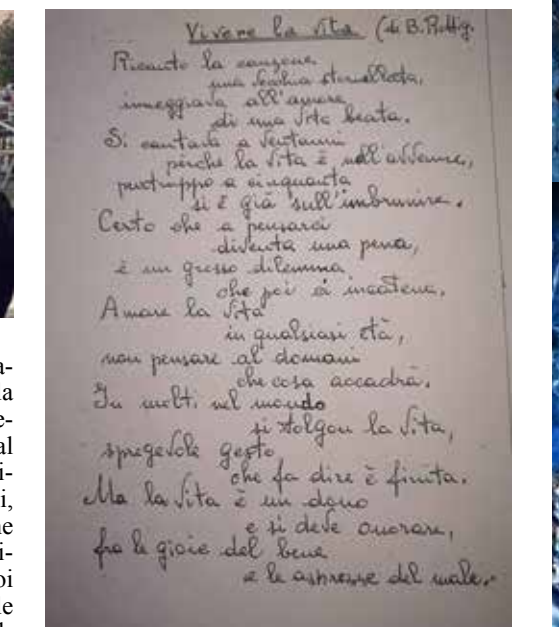 Vivere la vita (di B.
Ricordo la canzone
una vecchia stornellata,
inneggiava all'amore
di una vita beata.
Si cantava a vent'anni
perché la vita è nell'avvenire,
purtroppo a cinquanta
si è già sull'imbrunire.
Certo che a pensarci
diventa una pena,
è un grosso dilemma
che poi ci incatena.
Amare la vita
in qualsiasi età,
non pensare al domani
che cosa accadrà.
In molti nel mondo
si tolgon la vita,
spregevole gesto
che fa dire è finita.
Ma la vita è un dono
e si deve onorare,
fra le gioie del bene
e le asprezze del male.
a-
la
e-
al
i-
i,
ne
i-
oi
le